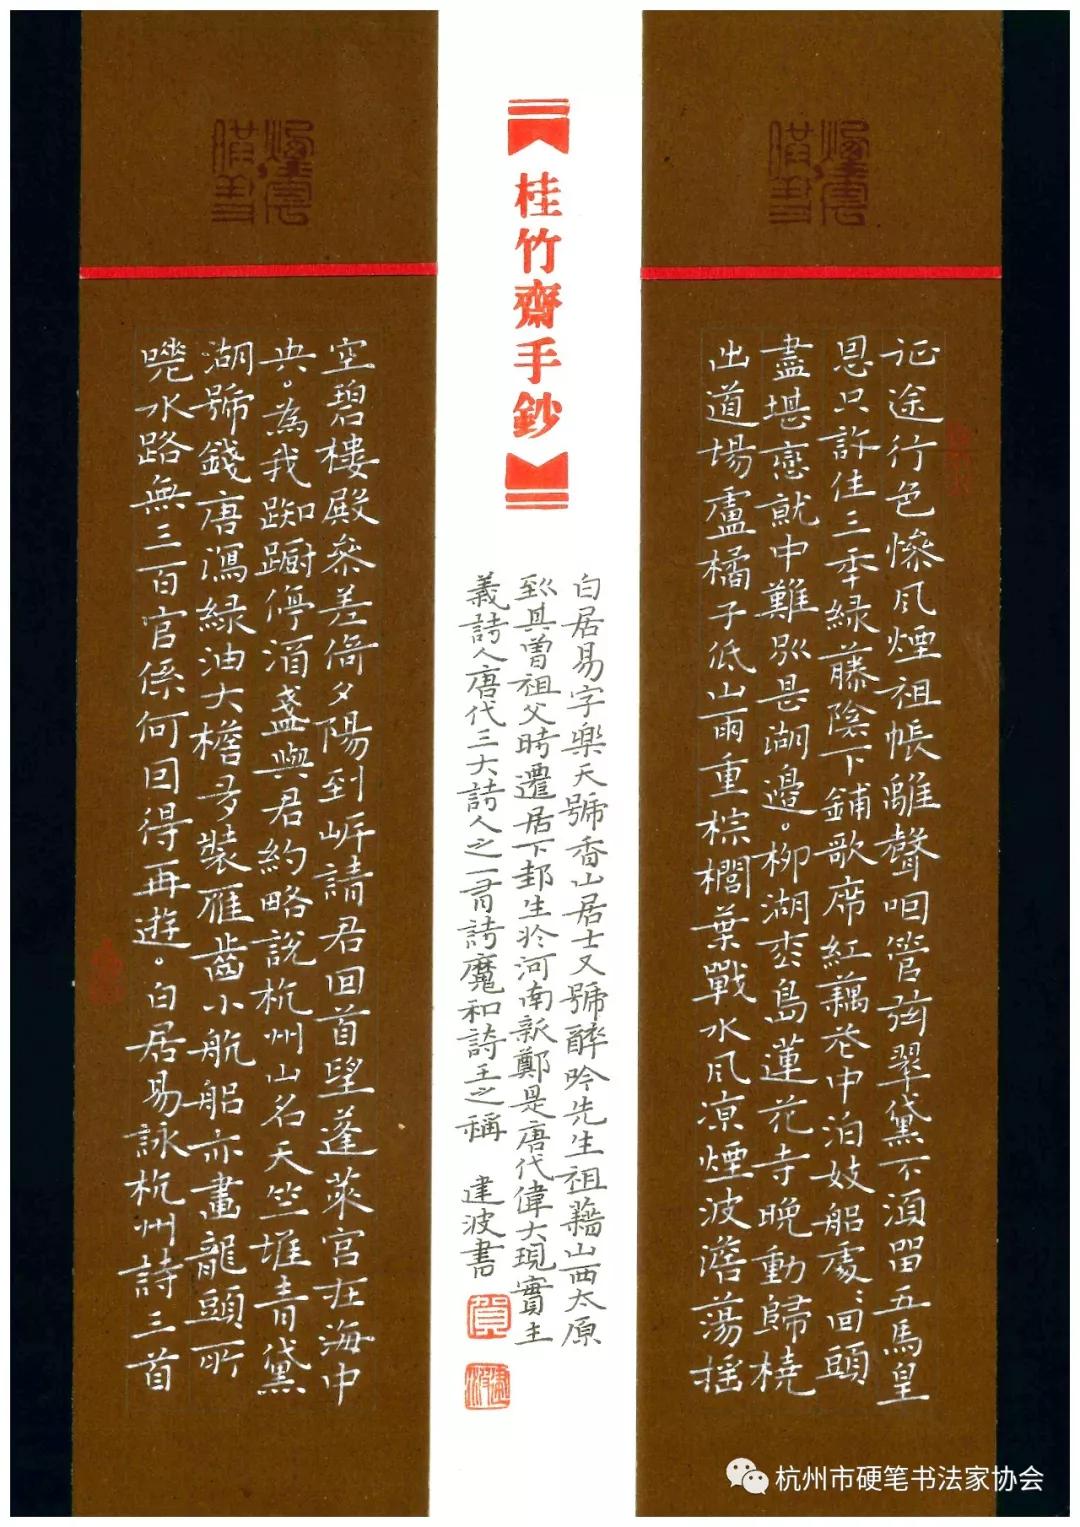 征途行色慘風煙祖帳離聲咽管弦翠黛不須留五馬皇
恩只許住三年綠藤陰下鋪歌席紅藕花中泊妓船處〻回頭
盡堪戀就中難別是湖邊。柳湖松島蓮花寺晚動歸橈
出道場盧橘子低山雨重棕櫚葉戰水風涼煙波澹蕩搖
桂竹齋手鈔
白居易字樂天號香山居士又號醉吟先生祖籍山西太原
到其曾祖父時遷居下邽生於河南新鄭是唐代偉大現實主
義詩人唐代三大詩人之一有詩魔和詩王之稱 建波書
空碧樓殿參差倚夕陽到岸請君回首望蓬萊宮在海中
央。為我踟躕停酒盞與君約略說杭州山名天竺堆青黛
湖號錢唐瀉綠油大檐多裝雁齒小航船亦畫龍頭所
嗟水路無三百官係何因得再遊。白居易詠杭州詩三首
杭州市硬笔书法家协会